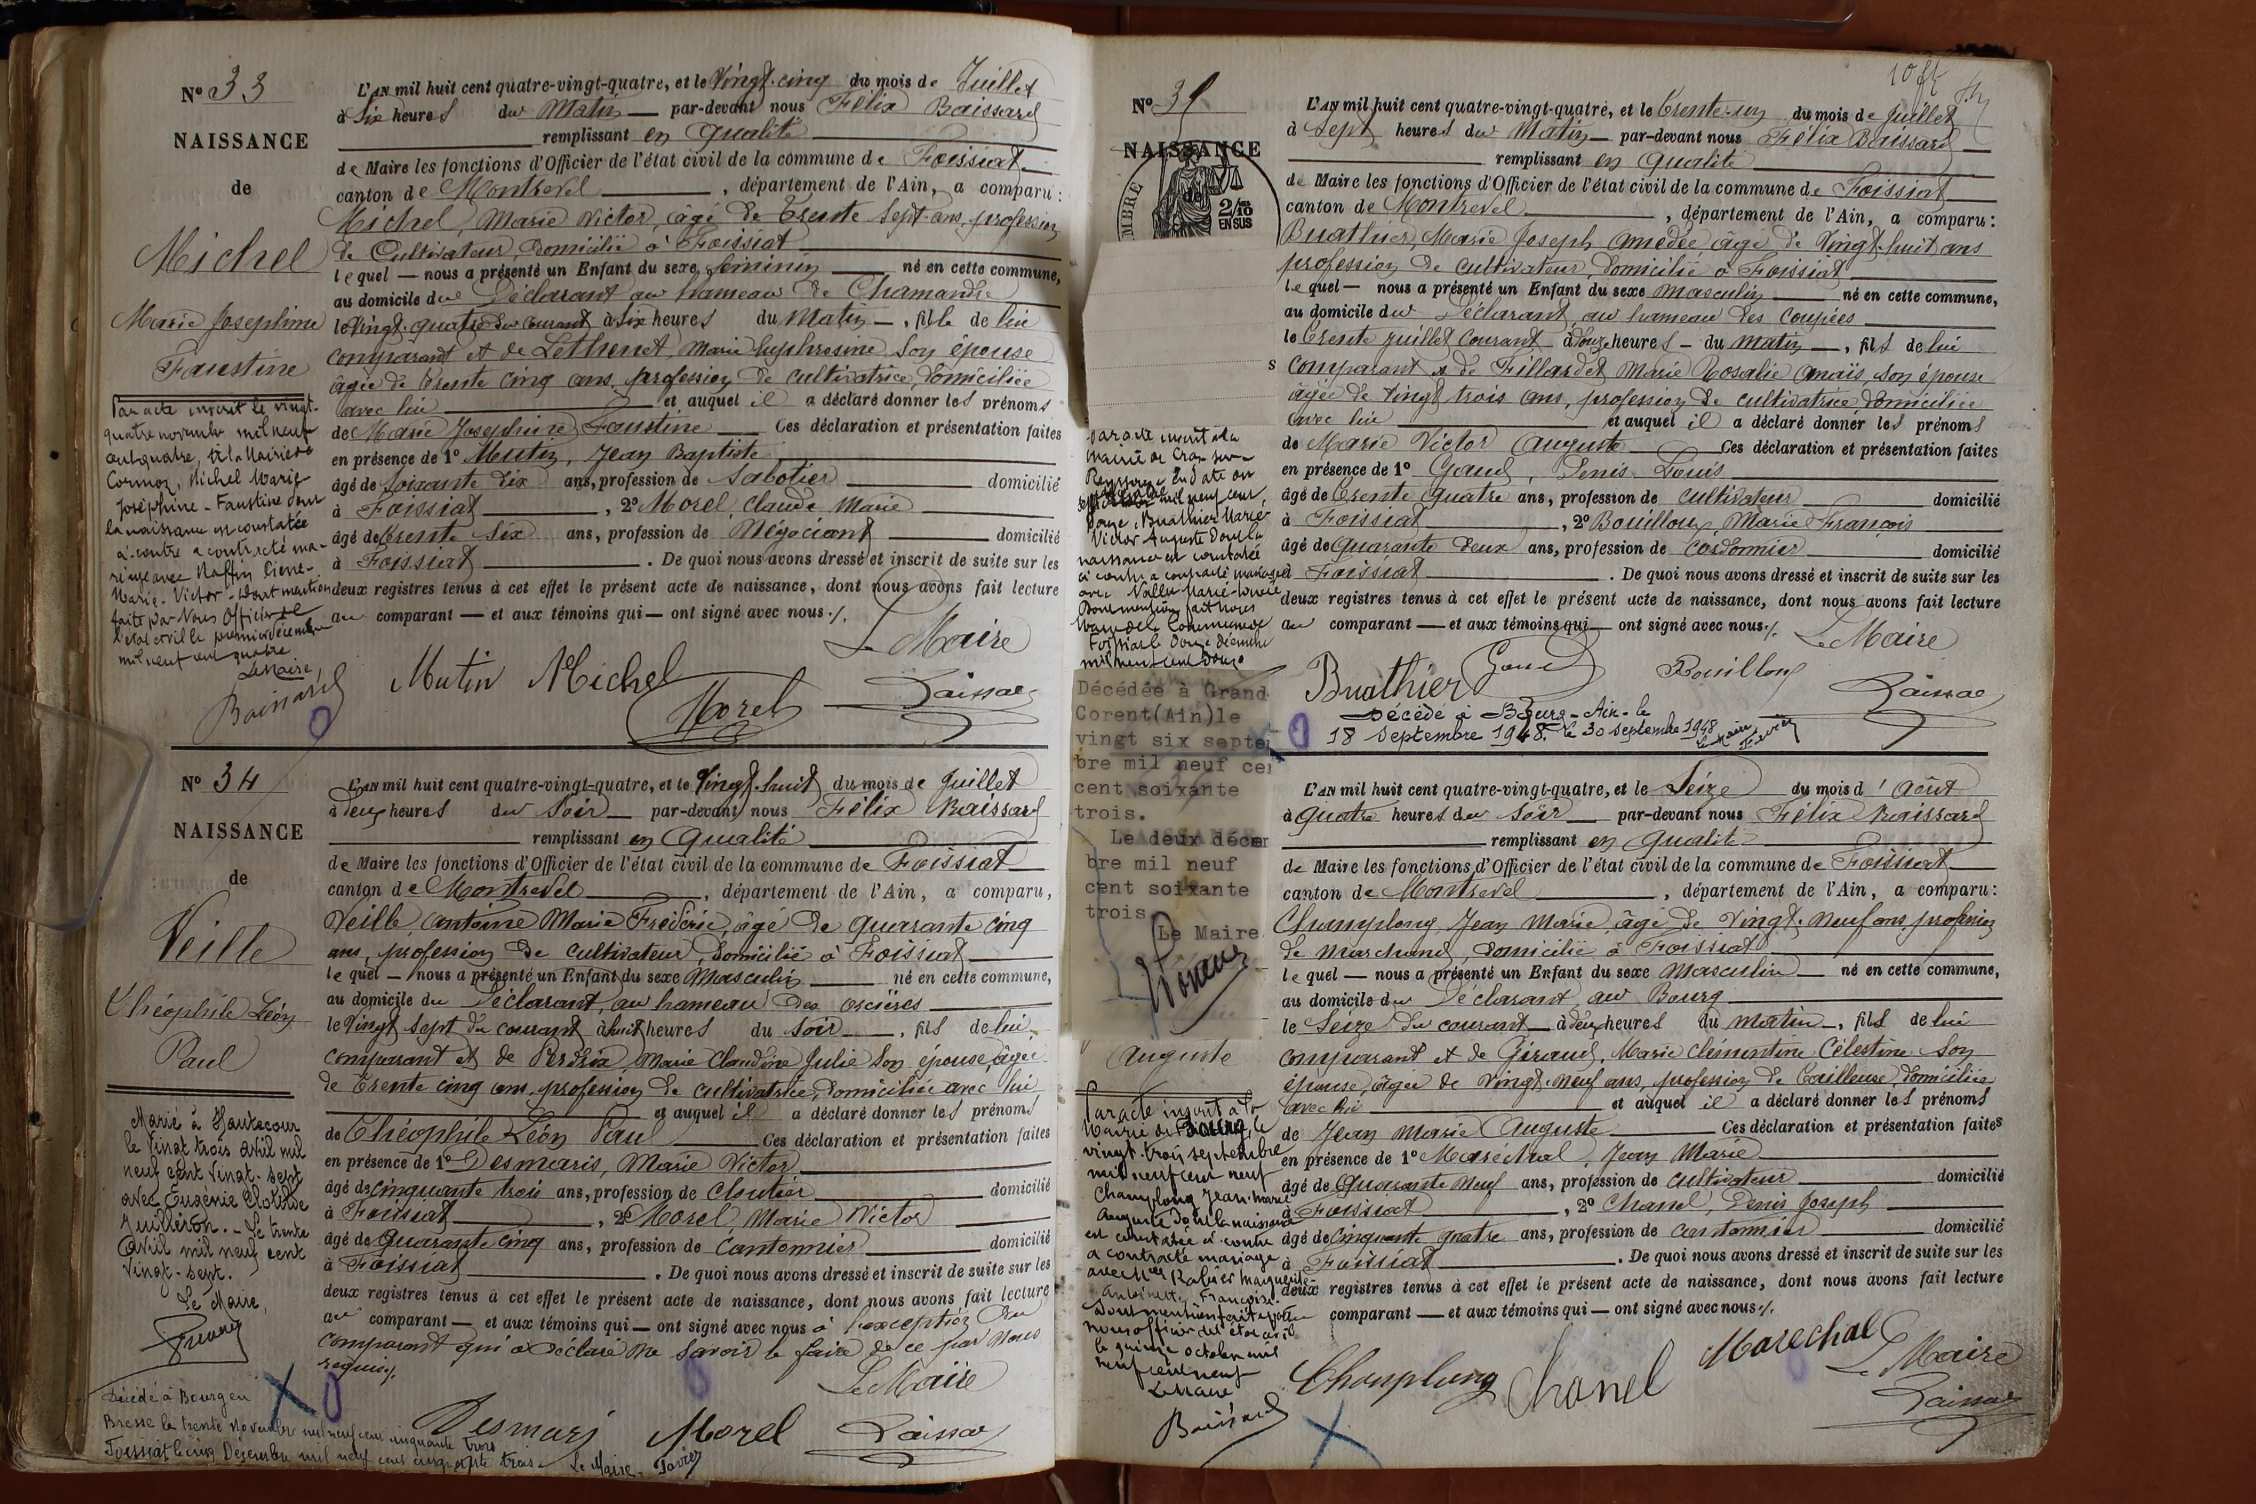 Nº 33
NAISSANCE
de
Michel
Marie Joséphine
Faustine
Par acte inscrit le vingt-
quatre novembre mil neuf
cent quatre, à la Mairie de
Cormoz, Michel Marie
Joséphine-Faustine dont
la naissance est constatée
ci-contre a contracté ma-
riage avec Maffin Pierre-
Marie-Victor. Dont mention
faite par Nous Officier de
l'état civil le premier décembre
mil neuf cent quatre
Le Maire,
Baissard
L'AN mil huit cent quatre-vingt-quatre, et le Vingt-cinq du mois de Juillet
à Six heures du Matin par-devant nous Félix Baissard
remplissant en qualité
de Maire les fonctions d'Officier de l'état civil de la commune de Foissiat
canton de Montrevel, département de l'Ain, a comparu:
Michel, Marie Victor, âgé de Trente sept ans, profession
de Cultivateur, domicilié à Foissiat
lequel nous a présenté un Enfant du sexe féminin né en cette commune,
au domicile du Déclarant au hameau de Chamandre
le Vingt-quatre du courant à six heures du Matin, fille de lui
comparant et de Lethenet, Marie Euphrosine son épouse
âgée de trente cinq ans, profession de cultivatrice, domiciliée
avec lui et auquel il a déclaré donner les prénoms
de Marie Joséphine Faustine Ces déclaration et présentation faites
en présence de 1º Mutin, Jean Baptiste
âgé de soixante dix ans, profession de Sabotier domicilié
à Foissiat, 2º Morel, Claude Marie
âgé de trente six ans, profession de Négociant domicilié
à Foissiat. De quoi nous avons dressé et inscrit de suite sur les
deux registres tenus à cet effet le présent acte de naissance, dont nous avons fait lecture
au comparant et aux témoins qui ont signé avec nous./.
Le Maire
Mutin Michel
Morel Baissard
Nº 34
NAISSANCE
de
Veille
Théophile Léon
Paul
Marié à Hautecour
le vingt trois avril mil
neuf cent vingt-sept
avec Eugénie Clotilde
Juilléron. - Le trente
avril mil neuf cent
vingt-sept.
Le Maire,
Décédé à Bourg en
Bresse le trente novembre mil neuf cent cinquante trois
Foissiat le cinq Décembre mil neuf cent cinquante trois. Le Maire.
L'AN mil huit cent quatre-vingt-quatre, et le Vingt-huit du mois de Juillet
à deux heures du Soir par-devant nous Félix Baissard
remplissant en qualité
de Maire les fonctions d'Officier de l'état civil de la commune de Foissiat
canton de Montrevel, département de l'Ain, a comparu,
Veille, Antoine Marie Frédéric, âgé de quarante cinq
ans, profession de cultivateur, domicilié à Foissiat
lequel nous a présenté un Enfant du sexe Masculin né en cette commune,
au domicile du Déclarant, au hameau des orcières
le Vingt sept du courant à huit heures du soir, fils de lui
comparant et de Perdrix, Marie Claudine Julie son épouse, âgée
de trente cinq ans, profession de cultivatrice, domiciliée avec lui
et auquel il a déclaré donner les prénoms
de Théophile Léon Paul Ces déclaration et présentation faites
en présence de 1º Desmaris, Marie Victor
âgé de cinquante trois ans, profession de cloutier domicilié
à Foissiat, 2º Morel, Marie Victor
âgé de quarante cinq ans, profession de Cantonnier domicilié
à Foissiat. De quoi nous avons dressé et inscrit de suite sur les
deux registres tenus à cet effet le présent acte de naissance, dont nous avons fait lecture
au comparant et aux témoins qui ont signé avec nous à l'exception du
comparant qui a déclaré ne savoir le faire de ce par nous
requis./.
Le Maire
Desmaris Morel Baissard
Nº 35
NAISSANCE
de
2/10 EN SUS
Par acte inscrit à la
Mairie de Cras-sur-
Reyssouze en date du
mil neuf cent
douze, Buathier Marie-
Victor Auguste dont la
naissance est constatée
ci contre a contracté mariage
avec Vallet Marie-Louise
Dont mention faite par nous
Maire de la Commune de
Foissiat le douze décembre
mil neuf cent douze
Décédée à Grand
Corent(Ain)le
vingt six septem
bre mil neuf cen
cent soixante
trois.
Le deux décem
bre mil neuf
cent soixante
trois
Le Maire
Auguste
Par acte inscrit à la
Mairie de Bourg, le
vingt-trois septembre
mil neuf cent neuf
Champlong Jean-Marie
Auguste dont la naissance
est constatée ci-contre
a contracté mariage
avec Melle Rabuer Marguerite
Antoinette Françoise
Dont mention faite par
nous officier de l'état civil
le quinze octobre mil
neuf cent neuf
Le Maire
Baissard
L'AN mil huit cent quatre-vingt-quatre, et le Trente-un du mois de Juillet
à Sept heures du Matin par-devant nous Félix Baissard
remplissant en qualité
de Maire les fonctions d'Officier de l'état civil de la commune de Foissiat
canton de Montrevel, département de l'Ain, a comparu:
Buathier, Marie Joseph Amédée âgé de Vingt-huit ans
profession de cultivateur, domicilié à Foissiat
lequel nous a présenté un Enfant du sexe masculin né en cette commune,
au domicile du Déclarant au hameau des coupées
le trente juillet courant à douze heures du matin, fils de lui
comparant et de Fillardet Marie Rosalie Anaïs, son épouse
âgée de vingt trois ans, profession de cultivatrice domiciliée
avec lui et auquel il a déclaré donner les prénoms
de Marie Victor Auguste Ces déclaration et présentation faites
en présence de 1º Gaud, Denis Louis
âgé de trente quatre ans, profession de cultivateur domicilié
à Foissiat, 2º Bouilloux Marie François
âgé de quarante deux ans, profession de cordonnier domicilié
à Foissiat. De quoi nous avons dressé et inscrit de suite sur les
deux registres tenus à cet effet le présent acte de naissance, dont nous avons fait lecture
au comparant et aux témoins qui ont signé avec nous./.
Le Maire
Buathier Gaud Bouilloux Baissard
Décédé à Bourg-Ain-le
18 septembre 1948. le 30 septembre 1948
Le Maire
L'AN mil huit cent quatre-vingt-quatre, et le Seize du mois d'Août
à quatre heures du soir par-devant nous Félix Baissard
remplissant en qualité
de Maire les fonctions d'Officier de l'état civil de la commune de Foissiat
canton de Montrevel, département de l'Ain, a comparu:
Champlong Jean Marie, âgé de Vingt-neuf ans, profession
de marchand, domicilié à Foissiat
lequel nous a présenté un Enfant du sexe Masculin né en cette commune,
au domicile du Déclarant au Bourg
le Seize du courant à deux heures du matin, fils de lui
comparant et de Giraud, Marie Clémentine Célestine son
épouse, âgée de vingt-neuf ans, profession de Tailleuse, domiciliée
avec lui et auquel il a déclaré donner les prénoms
de Jean Marie Auguste Ces déclaration et présentation faites
en présence de 1º Maréchal, Jean Marie
âgé de quarante neuf ans, profession de cultivateur domicilié
à Foissiat, 2º Chanel, Denis Joseph
âgé de cinquante quatre ans, profession de cantonnier domicilié
à Foissiat. De quoi nous avons dressé et inscrit de suite sur les
deux registres tenus à cet effet le présent acte de naissance, dont nous avons fait lecture
comparant et aux témoins qui ont signé avec nous./.
Champlong Chanel Marechal Le Maire
Baissard